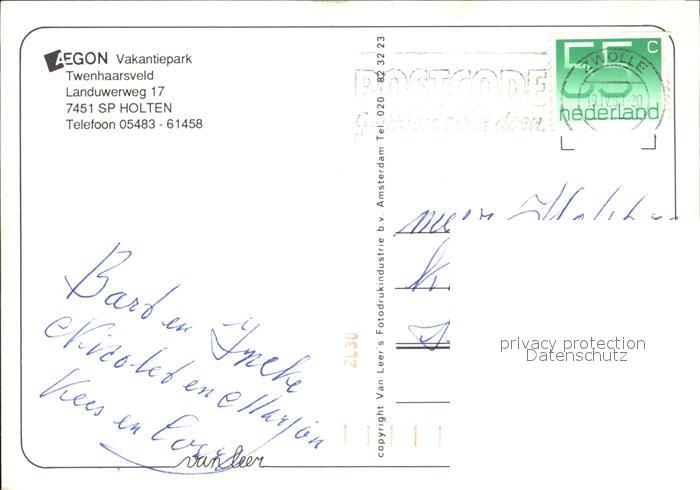 AEGON Vakantiepark
Twenhaarsveld
Landuwerweg 17
7451 SP HOLTEN
Telefoon 05483 - 61458
copyright Van Leer's Fotodrukindustrie b.v. Amsterdam Tel. 020 - 82 32 23
POSTCODE
Gewoon even doen.
ZWOLLE
55 c
nederland
Bart en Ineke
Nicolet en Marjon
Kees en
van leer
ZL30
privacy protection
Datenschutz